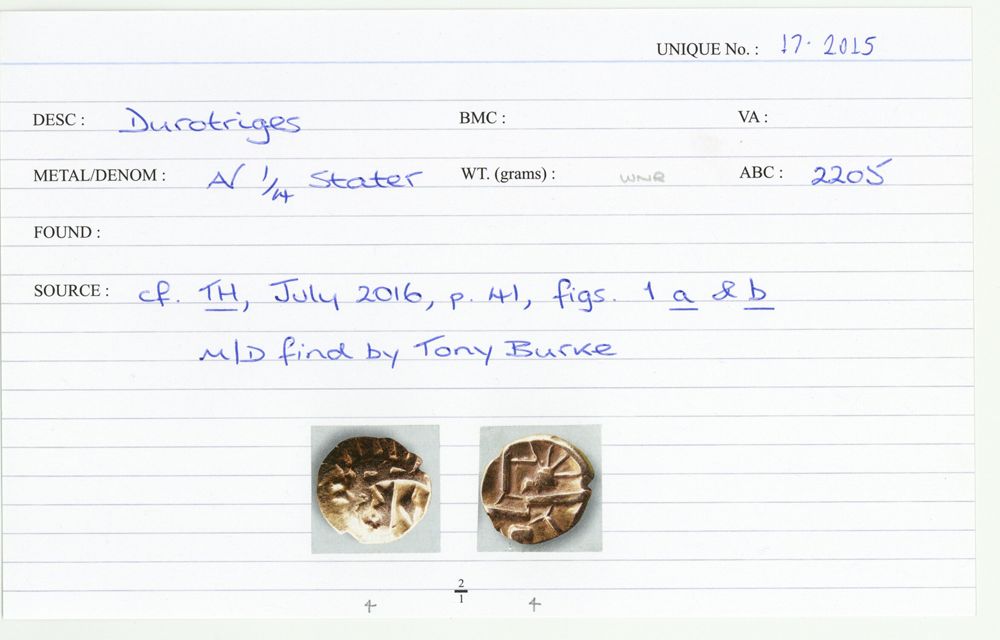 UNIQUE No. : 17. 2015
DESC : Durotriges BMC : VA :
METAL/DENOM : A/ 1/4 Stater WT. (grams) : WNR ABC : 2205
FOUND :
SOURCE : cf. TH, July 2016, p. 41, figs. 1 a & b
M/D find by Tony Burke
2
1
4 4